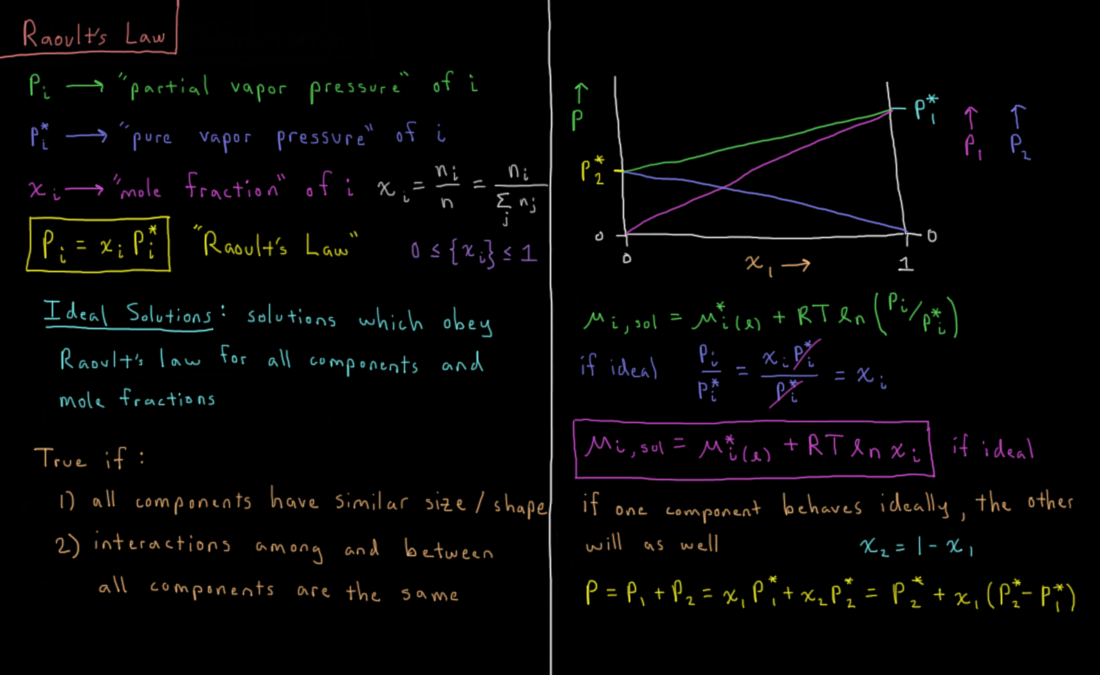 Raoult's Law
Pᵢ → "partial vapor pressure" of i
Pᵢ* → "pure vapor pressure" of i
xᵢ → "mole fraction" of i xᵢ = nᵢ/n = nᵢ/∑ⱼ nⱼ
Pᵢ = xᵢ Pᵢ* "Raoult's Law" 0 ≤ {xᵢ} ≤ 1
Ideal Solutions: solutions which obey
Raoult's law for all components and
mole fractions
True if:
1) all components have similar size/shape
2) interactions among and between
all components are the same
↑ P
P₂*
0
0
x₁ →
1
0
P₁*
↑ P₁
↑ P₂
μᵢ,sol = μ*ᵢ(ℓ) + RT ln (Pᵢ/Pᵢ*)
if ideal Pᵢ/Pᵢ* = xᵢ Pᵢ*/Pᵢ* = xᵢ
μᵢ,sol = μ*ᵢ(ℓ) + RT ln xᵢ if ideal
if one component behaves ideally, the other
will as well x₂ = 1 - x₁
P = P₁ + P₂ = x₁ P₁* + x₂ P₂* = P₂* + x₁ (P₂* - P₁*)